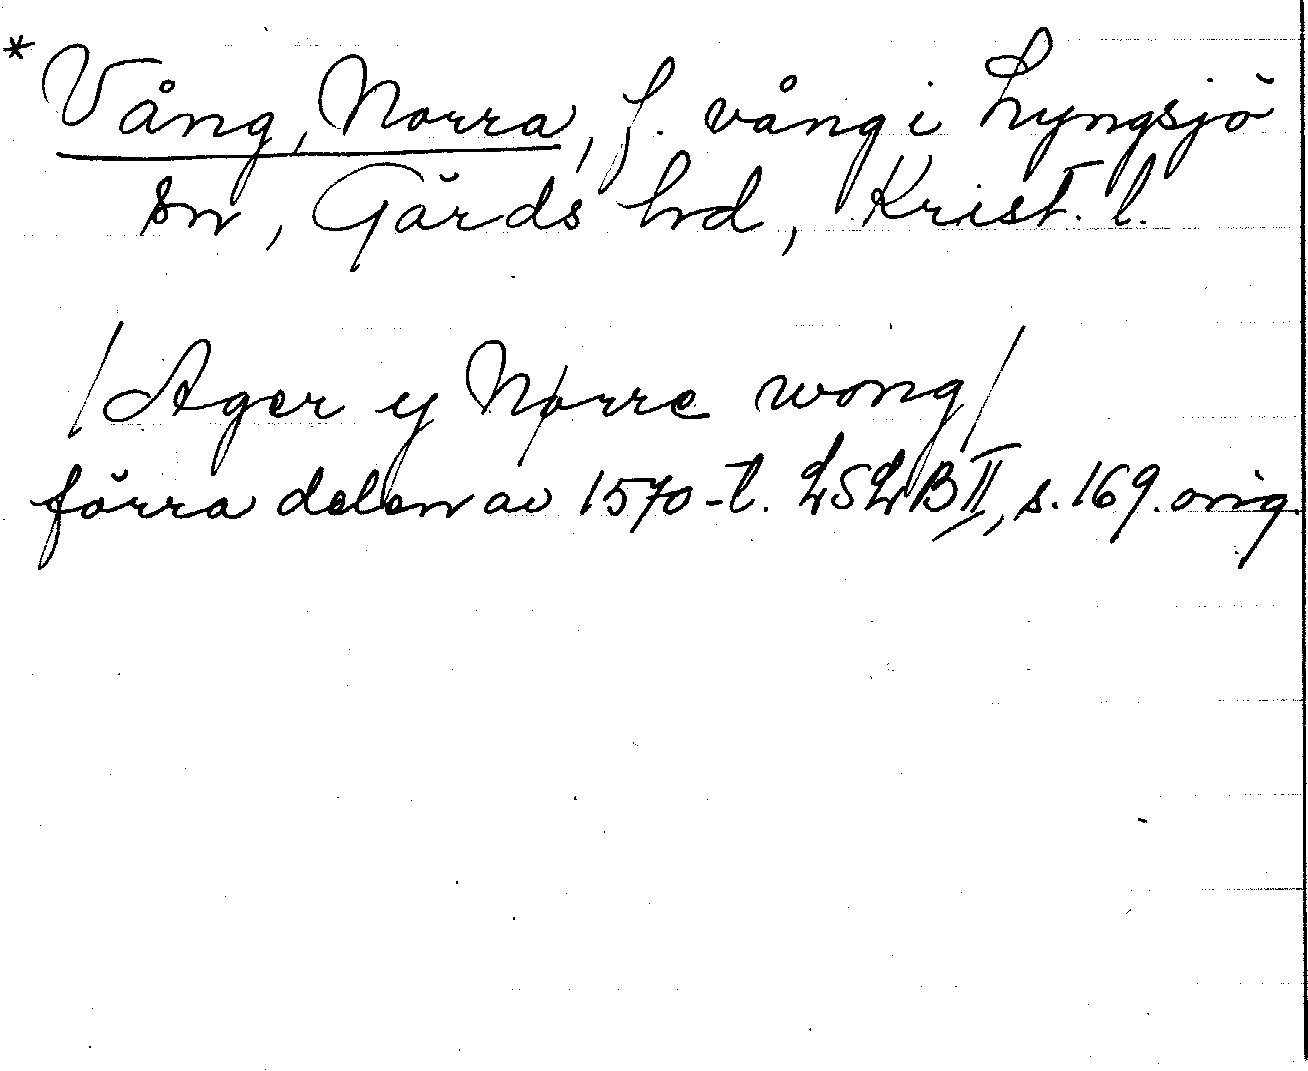 * Vång, Norra, f. vång i Lyngsjö
sn, Gärds hd, Krist. l.
/Ager y Nørre wong/
förra delen av 1570-t. LSLB II, s. 169. orig.